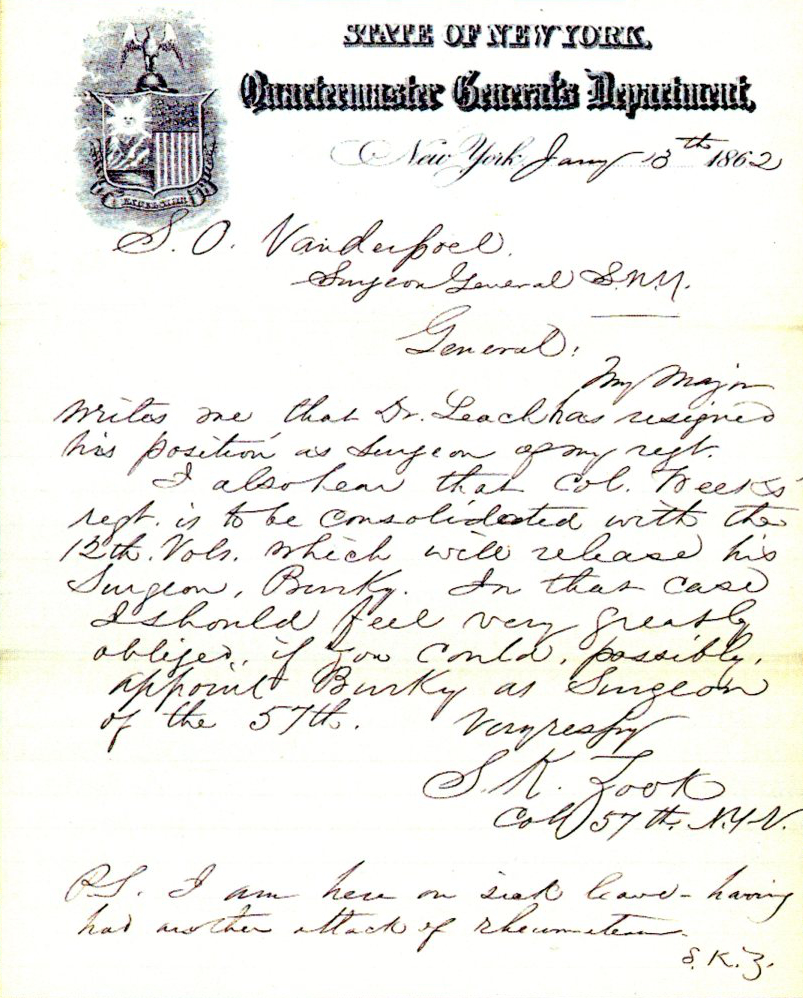 STATE OF NEW YORK,
Quartermaster General's Department,
EXCELSIOR
New York Jany 13th 1862
S. O. Vanderpoel.
Surgeon General S.N.Y.
General:
My Major
writes me that Dr. Leach has resigned
his position as Surgeon of my regt.
I also hear that Col. Weeks'
regt. is to be consolidated with the
12th. Vols. which will release his
Surgeon, Burky. In that case
I should feel very greatly
obliged, if you could, possibly,
appoint Burky as Surgeon
of the 57th. Very respy
S. K. Zook
Col 57th. N.Y.V.
P.S. I am here on sick leave - having
had another attack of rheumatism.
S. K. Z.